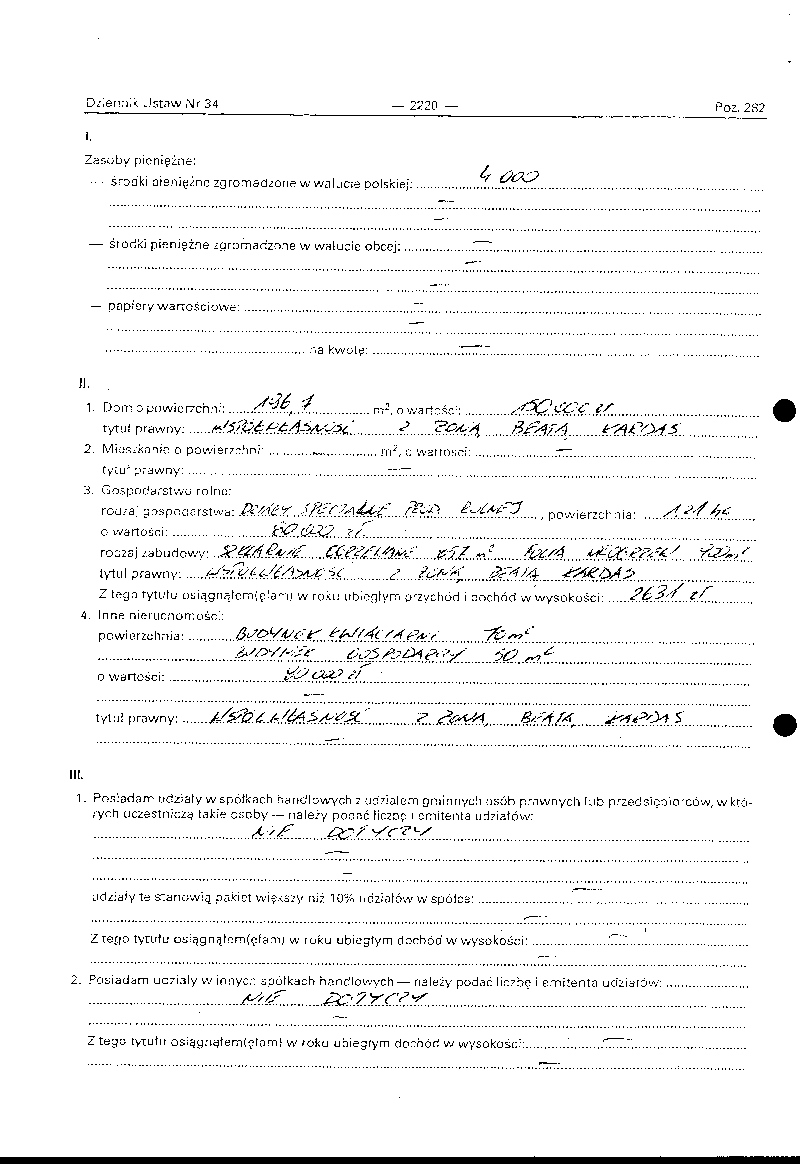 Dziennik Ustaw Nr 34 — 2220 — Poz. 282
I.
Zasoby pieniężne:
— środki pieniężne zgromadzone w walucie polskiej: 4 000
—
—
— środki pieniężne zgromadzone w walucie obcej: —
—
—
— papiery wartościowe: —
—
na kwotę: —
II.
1. Dom o powierzchni: 196,7 m², o wartości: 150 000 zł
tytuł prawny: WSPÓŁWŁASNOŚĆ Z ŻONĄ BEATĄ KARDAS
2. Mieszkanie o powierzchni: — m², o wartości: —
tytuł prawny: —
3. Gospodarstwo rolne:
rodzaj gospodarstwa: DZIAŁY SPECJALNE PROD ROLNEJ, powierzchnia: 1,21 ha
o wartości: 80 000 zł
rodzaj zabudowy: SZKLARNIE OGRZEWANE m² FOLIA m²
tytuł prawny: WSPÓŁWŁASNOŚĆ Z ŻONĄ BEATĄ KARDAS
Z tego tytułu osiągnąłem(ęłam) w roku ubiegłym przychód i dochód w wysokości: 2631 zł
4. Inne nieruchomości:
powierzchnia: BUDYNEK KWIACIARNI 70 m²
BUDYNEK GOSPODARCZY 50 m²
o wartości: 40 000 zł
—
tytuł prawny: WSPÓŁWŁASNOŚĆ Z ŻONĄ BEATĄ KARDAS
—
III.
1. Posiadam udziały w spółkach handlowych z udziałem gminnych osób prawnych lub przedsiębiorców, w któ-
rych uczestniczą takie osoby — należy podać liczbę i emitenta udziałów:
NIE DOTYCZY
—
—
udziały te stanowią pakiet większy niż 10% udziałów w spółce: —
—
Z tego tytułu osiągnąłem(ęłam) w roku ubiegłym dochód w wysokości: —
—
2. Posiadam udziały w innych spółkach handlowych — należy podać liczbę i emitenta udziałów:
NIE DOTYCZY
—
Z tego tytułu osiągnąłem(ęłam) w roku ubiegłym dochód w wysokości: —
—